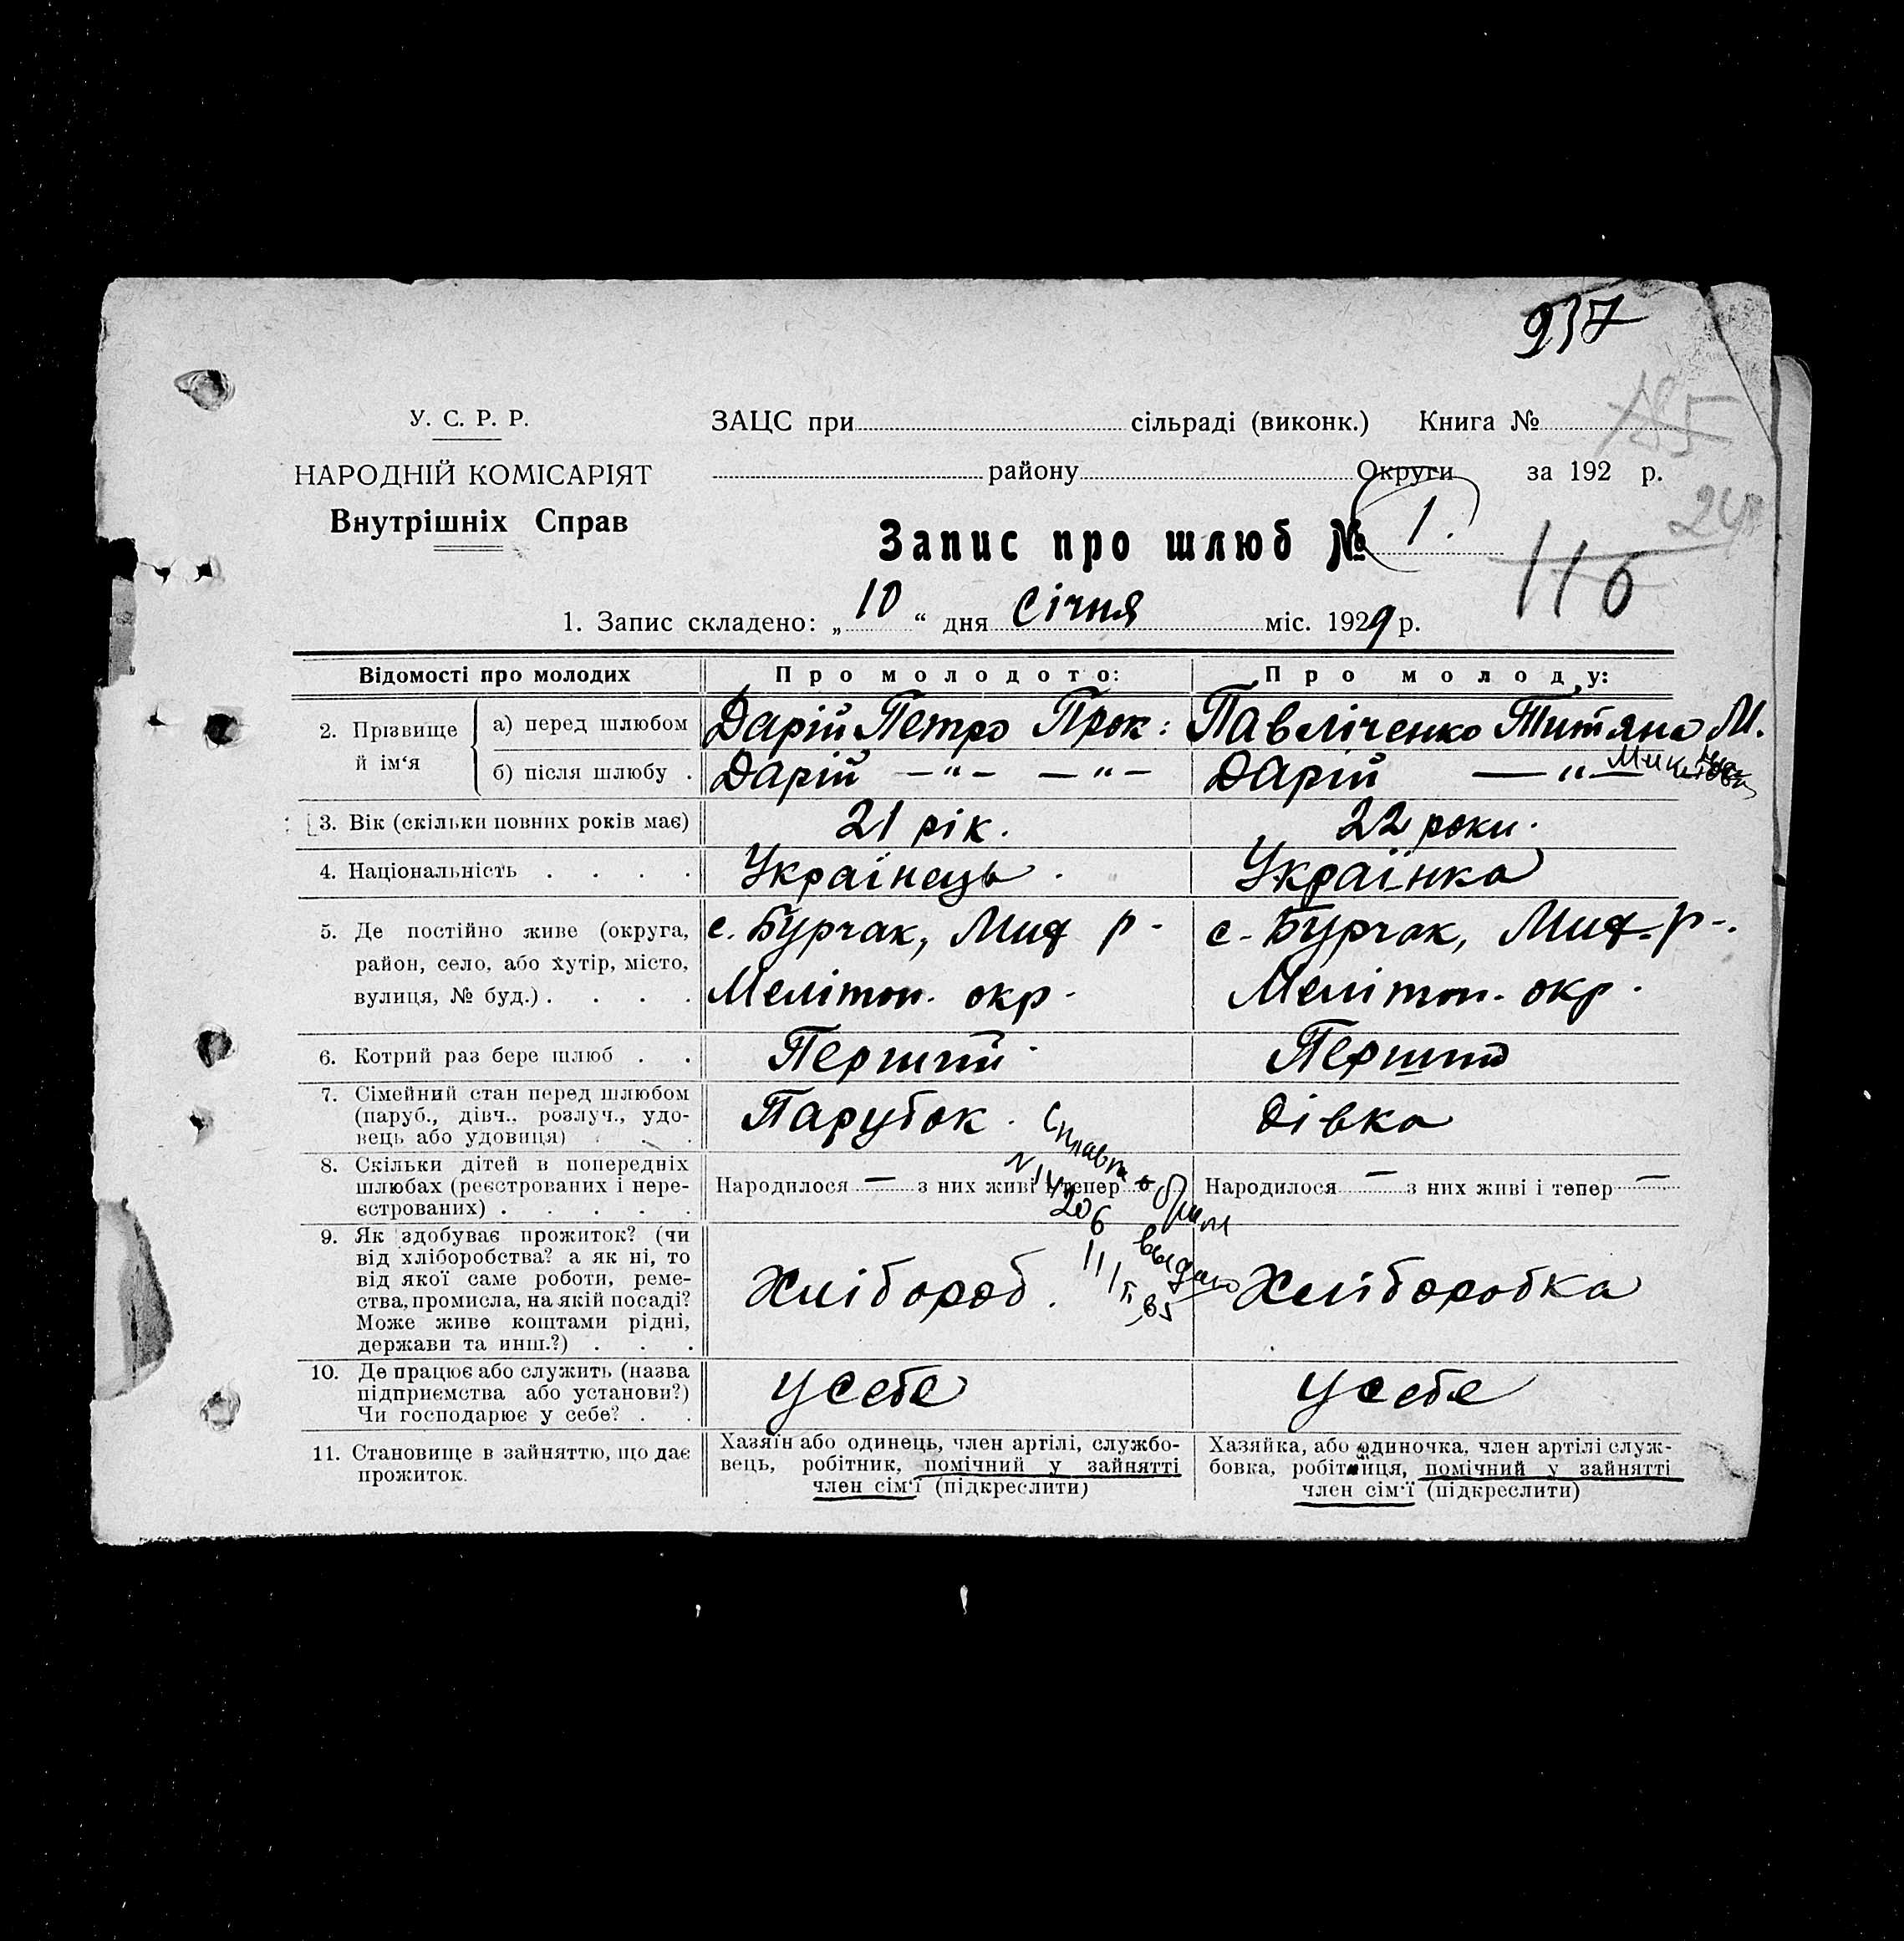 937
185
У. С. Р. Р.
ЗАЦС при сільраді (виконк.) Книга №
НАРОДНІЙ КОМІСАРІЯТ
району Округи за 192 р.
Внутрішніх Справ
Запис про шлюб № 1.
116
1. Запис складено: „ 10 “ дня січня міс. 1929 р.
Відомості про молодих
Про молодого:
Про молоду:
2. Прізвище й ім‘я
а) перед шлюбом
Дарій Петро Прок:
Павліченко Титяна М.
б) після шлюбу .
Дарій —"— —"—
Дарій —"—
3. Вік (скільки повних років має)
21 рік.
22 роки.
4. Національність . . . .
Українець.
Українка
5. Де постійно живе (округа,
район, село, або хутір, місто,
вулиця, № буд.) . . . .
с. Бурчак, Мих р-
Мелітоп. окр.
с. Бурчак, Мих. р-.
Мелітоп. окр.
6. Котрий раз бере шлюб . .
Перший
Перший
7. Сімейний стан перед шлюбом
(паруб., дівч., розлуч., удо-
вець або удовиця)
Парубок.
Дівка
8. Скільки дітей в попередніх
шлюбах (реєстрованих і нере-
єстрованих) . . . . .
Народилося — з них живі і тепер
Народилося — з них живі і тепер —
9. Як здобуває прожиток? (чи
від хліборобства? а як ні, то
від якої саме роботи, реме-
ства, промисла, на якій посаді?
Може живе коштами рідні,
держави та инш.?) . . .
Хлібороб.
Хліборобка
10. Де працює або служить (назва
підприємства або установи?)
Чи господарює у себе? . .
у себе
у себе
11. Становище в зайняттю, що дає
прожиток.
Хазяїн або одинець, член артілі, службо-
вець, робітник, помічний у зайнятті
член сім‘ї (підкреслити)
Хазяйка, або одиночка, член артілі служ-
бовка, робітниця, помічний у зайнятті
член сім‘ї (підкреслити)